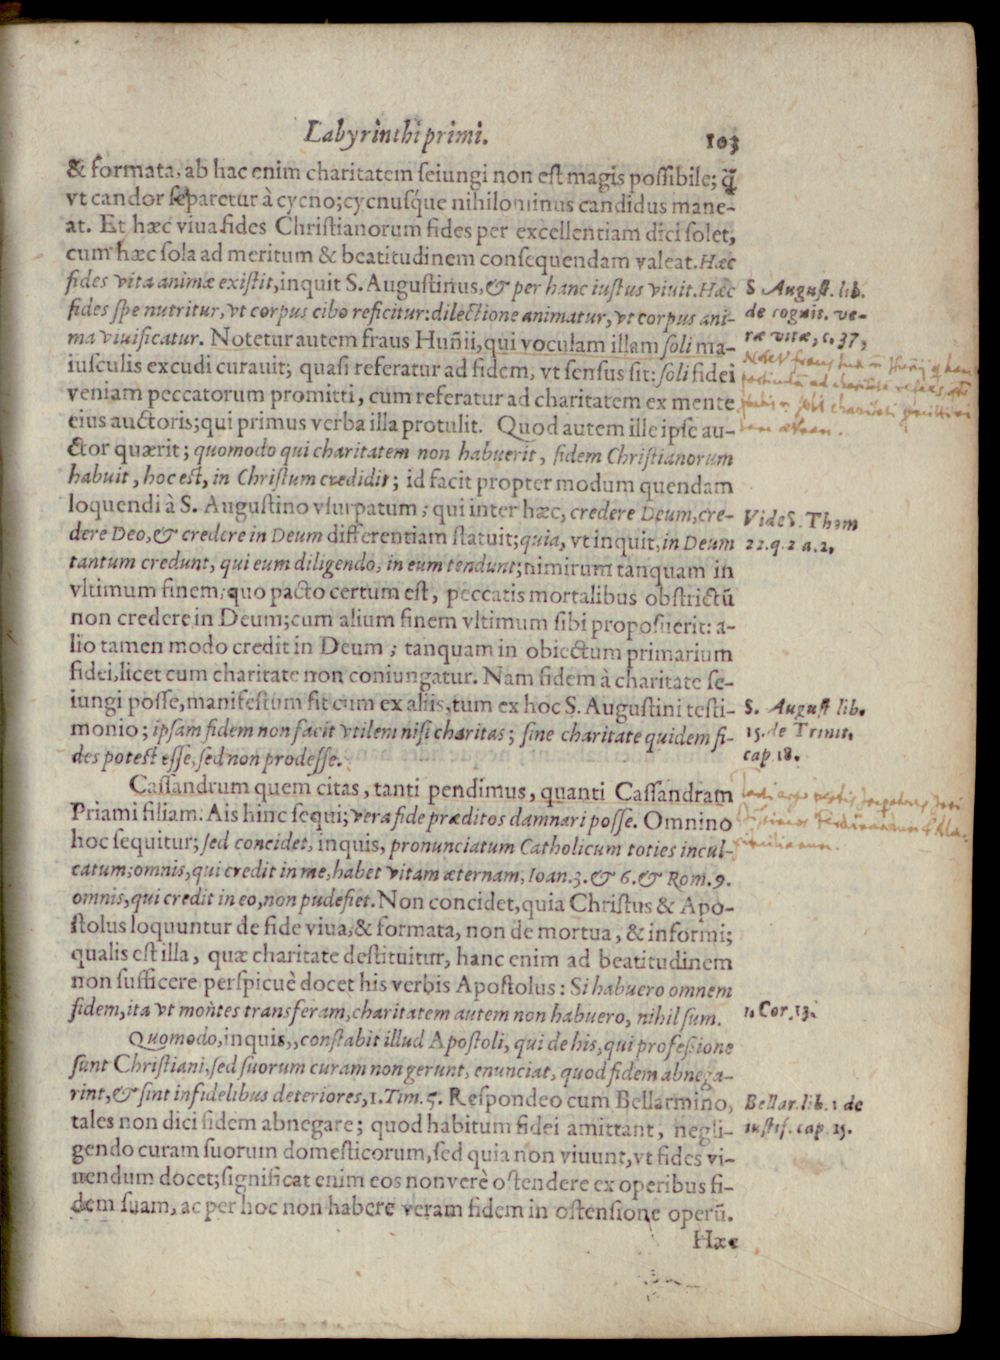 Labyrinthi primi. 103
& formata, ab hac enim charitatem seiungi non est magis possibile; q̃
vt candor separetur à cycno; cycnusq́ue nihilominus candidus mane-
at. Et hæc viua fides Christianorum fides per excellentiam dici solet,
cum hæc sola ad meritum & beatitudinem consequendam valeat. Hæc
fides vita animæ existit, inquit S. Augustinus, & per hanc iustus viuit. Hæc
fides spe nutritur, vt corpus cibo reficitur: dilectione animatur, vt corpus ani-
ma viuificatur. Notetur autem fraus Huñii, qui voculam illam soli ma-
iusculis excudi curauit; quasi referatur ad fidem, vt sensus sit: soli fidei
veniam peccatorum promitti, cum referatur ad charitatem ex mente
eius auctoris; qui primus verba illa protulit. Quod autem ille ipse au-
ctor quærit; quomodo qui charitatem non habuerit, fidem Christianorum
habuit, hoc est, in Christum credidit; id facit propter modum quendam
loquendi à S. Augustino vsurpatum; qui inter hæc, credere Deum, cre-
dere Deo, & credere in Deum differentiam statuit; quia, vt inquit, in Deum
tantum credunt, qui eum diligendo, in eum tendunt; nimirum tanquam in
vltimum finem; quo pacto certum est, peccatis mortalibus obstrictũ
non credere in Deum; cum alium finem vltimum sibi proposuerit: a-
lio tamen modo credit in Deum; tanquam in obiectum primarium
fidei, licet cum charitate non coniungatur. Nam fidem à charitate se-
iungi posse, manifestum fit cum ex aliis, tum ex hoc S. Augustini testi-
monio; ipsam fidem non facit vtilem nisi charitas; sine charitate quidem fi-
des potest esse, sed non prodesse.
Cassandrum quem citas, tanti pendimus, quanti Cassandram
Priami filiam. Ais hinc sequi; vera fide præditos damnari posse. Omnino
hoc sequitur; sed concidet, inquis, pronunciatum Catholicum toties incul-
catum; omnis, qui credit in me, habet vitam æternam, Ioan. 3. & 6. & Rom. 9.
omnis, qui credit in eo, non pudefiet. Non concidet, quia Christus & Apo-
stolus loquuntur de fide viua, & formata, non de mortua, & informi;
qualis est illa, quæ charitate destituitur, hanc enim ad beatitudinem
non sufficere perspicuè docet his verbis Apostolus: Si habuero omnem
fidem, ita vt montes transferam, charitatem autem non habuero, nihil sum.
Quomodo, inquis, constabit illud Apostoli, qui de his, qui professione
sunt Christiani, sed suorum curam non gerunt, enunciat, quod fidem abnega-
rint, & sint infidelibus deteriores, 1. Tim. 5. Respondeo cum Bellarmino,
tales non dici fidem abnegare; quod habitum fidei amittant, negli-
gendo curam suorum domesticorum, sed quia non viuunt, vt fides vi-
uendum docet; significat enim eos non verè ostendere ex operibus fi-
dem suam, ac per hoc non habere veram fidem in ostensione operũ.
Hæc
S. August. lib.
de cognit. ve-
ræ vitæ, c. 37,
Vide S. Thom
22. q. 2 a. 2.
S. August lib.
15. de Trinit.
cap 18.
1. Cor. 13.
Bellar. lib. 1 de
iustif. cap. 15.